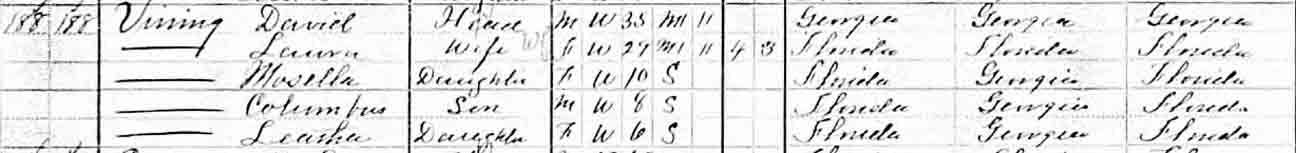 188 188 Vining David Head M W 35 M1 11 Georgia Georgia Georgia
— Laura Wife F W 27 M1 11 4 3 Florida Florida Florida
— Mosella Daughter F W 10 S Florida Georgia Florida
— Columbus Son M W 8 S Florida Georgia Florida
— Leasha Daughter F W 6 S Florida Georgia Florida